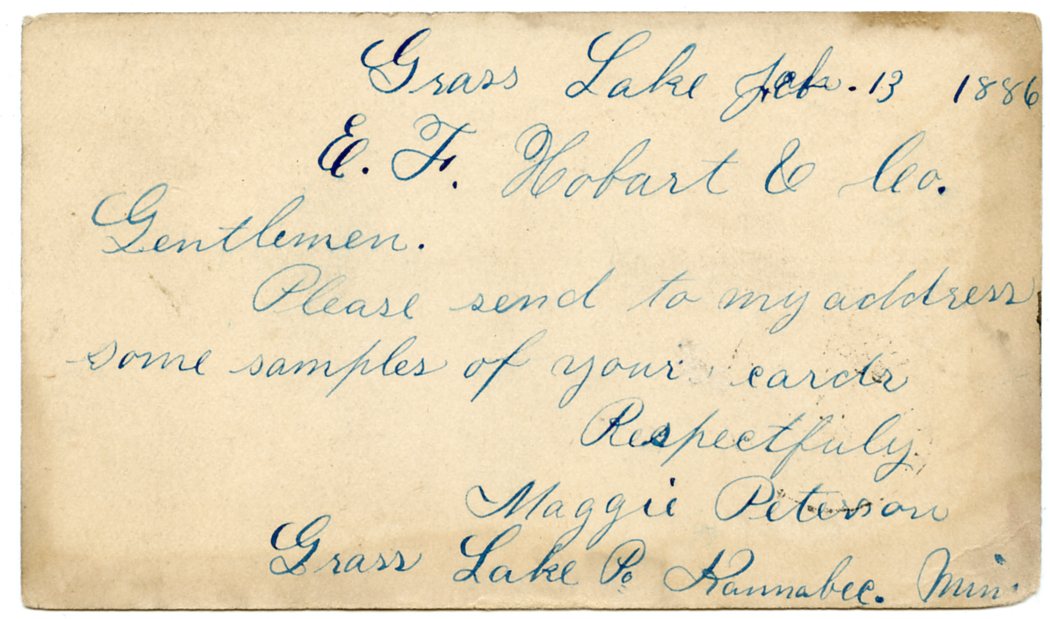 Grass Lake Feb. 13 1886
E. F. Hobart & Co.
Gentlemen.
Please send to my address
some samples of your cards
Respectfuly
Maggie Peterson
Grass Lake Po Kannabec. Min.